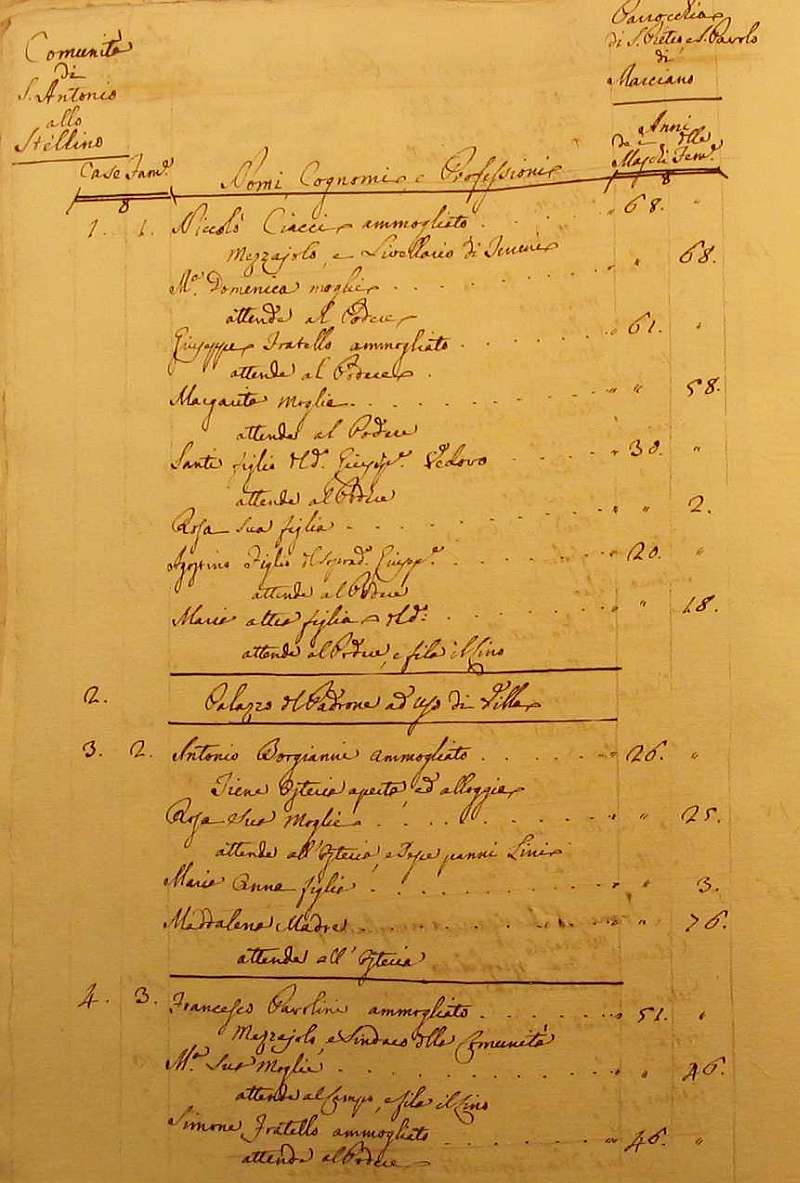 Comunità
di
S. Antonio
allo
Stellino
Parrocchia
di S. Pietro e S. Pavolo
di
Marciano
Case Fam.e
Nomi, Cognomi, e Professioni
Anni
de e dlle
Maschi Fem.e
1. 1. Niccolò Ciacci ammogliato . . . . . " 68. "
Mezzajolo, e Livellario di Terreni
M.a Domenica moglie . . . . . " " 68.
attende al Podere
Giuseppe Fratello ammogliato . . . . . " 61. "
attende al Podere
Margarita Moglie . . . . . " " 58.
attende al Podere
Santi figlio del d.o Giusep.e Vedovo . . . . " 30. "
attende al Podere
Rosa sua figlia . . . . . " " 2.
Agostino Figlio del soprad.o Giusepp.e . . . . " 20. "
attende al Podere
Maria altra figlia del d.o . . . . . " " 18.
attende al Podere, e fila il Lino
2. Palazzo del Padrone ad uso di Villa
3. 2. Antonio Borgianni ammogliato . . . . . " 26. "
Tiene Osteria aperta, ed alloggia
Rosa sua Moglie . . . . . " " 25.
attende all'Osteria, e Tesse panni Lini
Maria Anna figlia . . . . . " " 3.
Maddalena Madre . . . . . " " 76.
attende all'Osteria
4. 3. Francesco Pavolini ammogliato . . . . . " 51. "
Mezzajolo, e Sindaco della Comunità
M.a Sua Moglie . . . . . " " 46.
attende al Campo, e fila il Lino
Simone Fratello ammogliato . . . . . " 46. "
attende al Podere